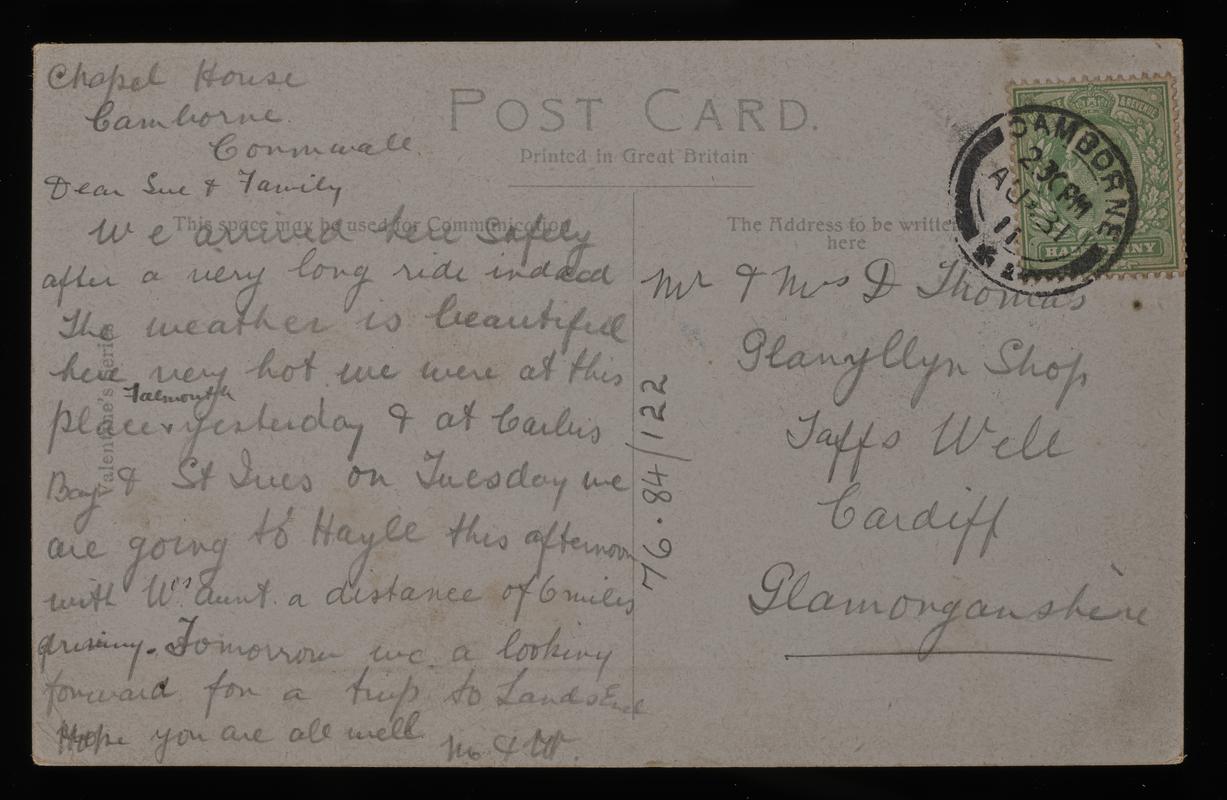 Chapel House
Camborne.
Cornwall.
Dear Sue & Family
We arrived here Safely
after a very long ride indeed
The weather is beautiful
here very hot we were at this
Falmouth
place x yesterday & at Carbis
Bay & St Ives on Tuesday we
are going to Hayle this afternoon
with W's aunt. a distance of 6 miles
driving. Tomorrow we a looking
forward for a trip to Lands End
Hope you are all well.
M & W.
POST CARD.
Printed in Great Britain
This space may be used for Communication
The Address to be written
here
Valentine's Series
76.84/122
CAMBORNE
2 30PM
AU 31
11
HALFPENNY
Mr & Mrs D Thomas
Glanyllyn Shop
Taffs Well
Cardiff
Glamorganshire